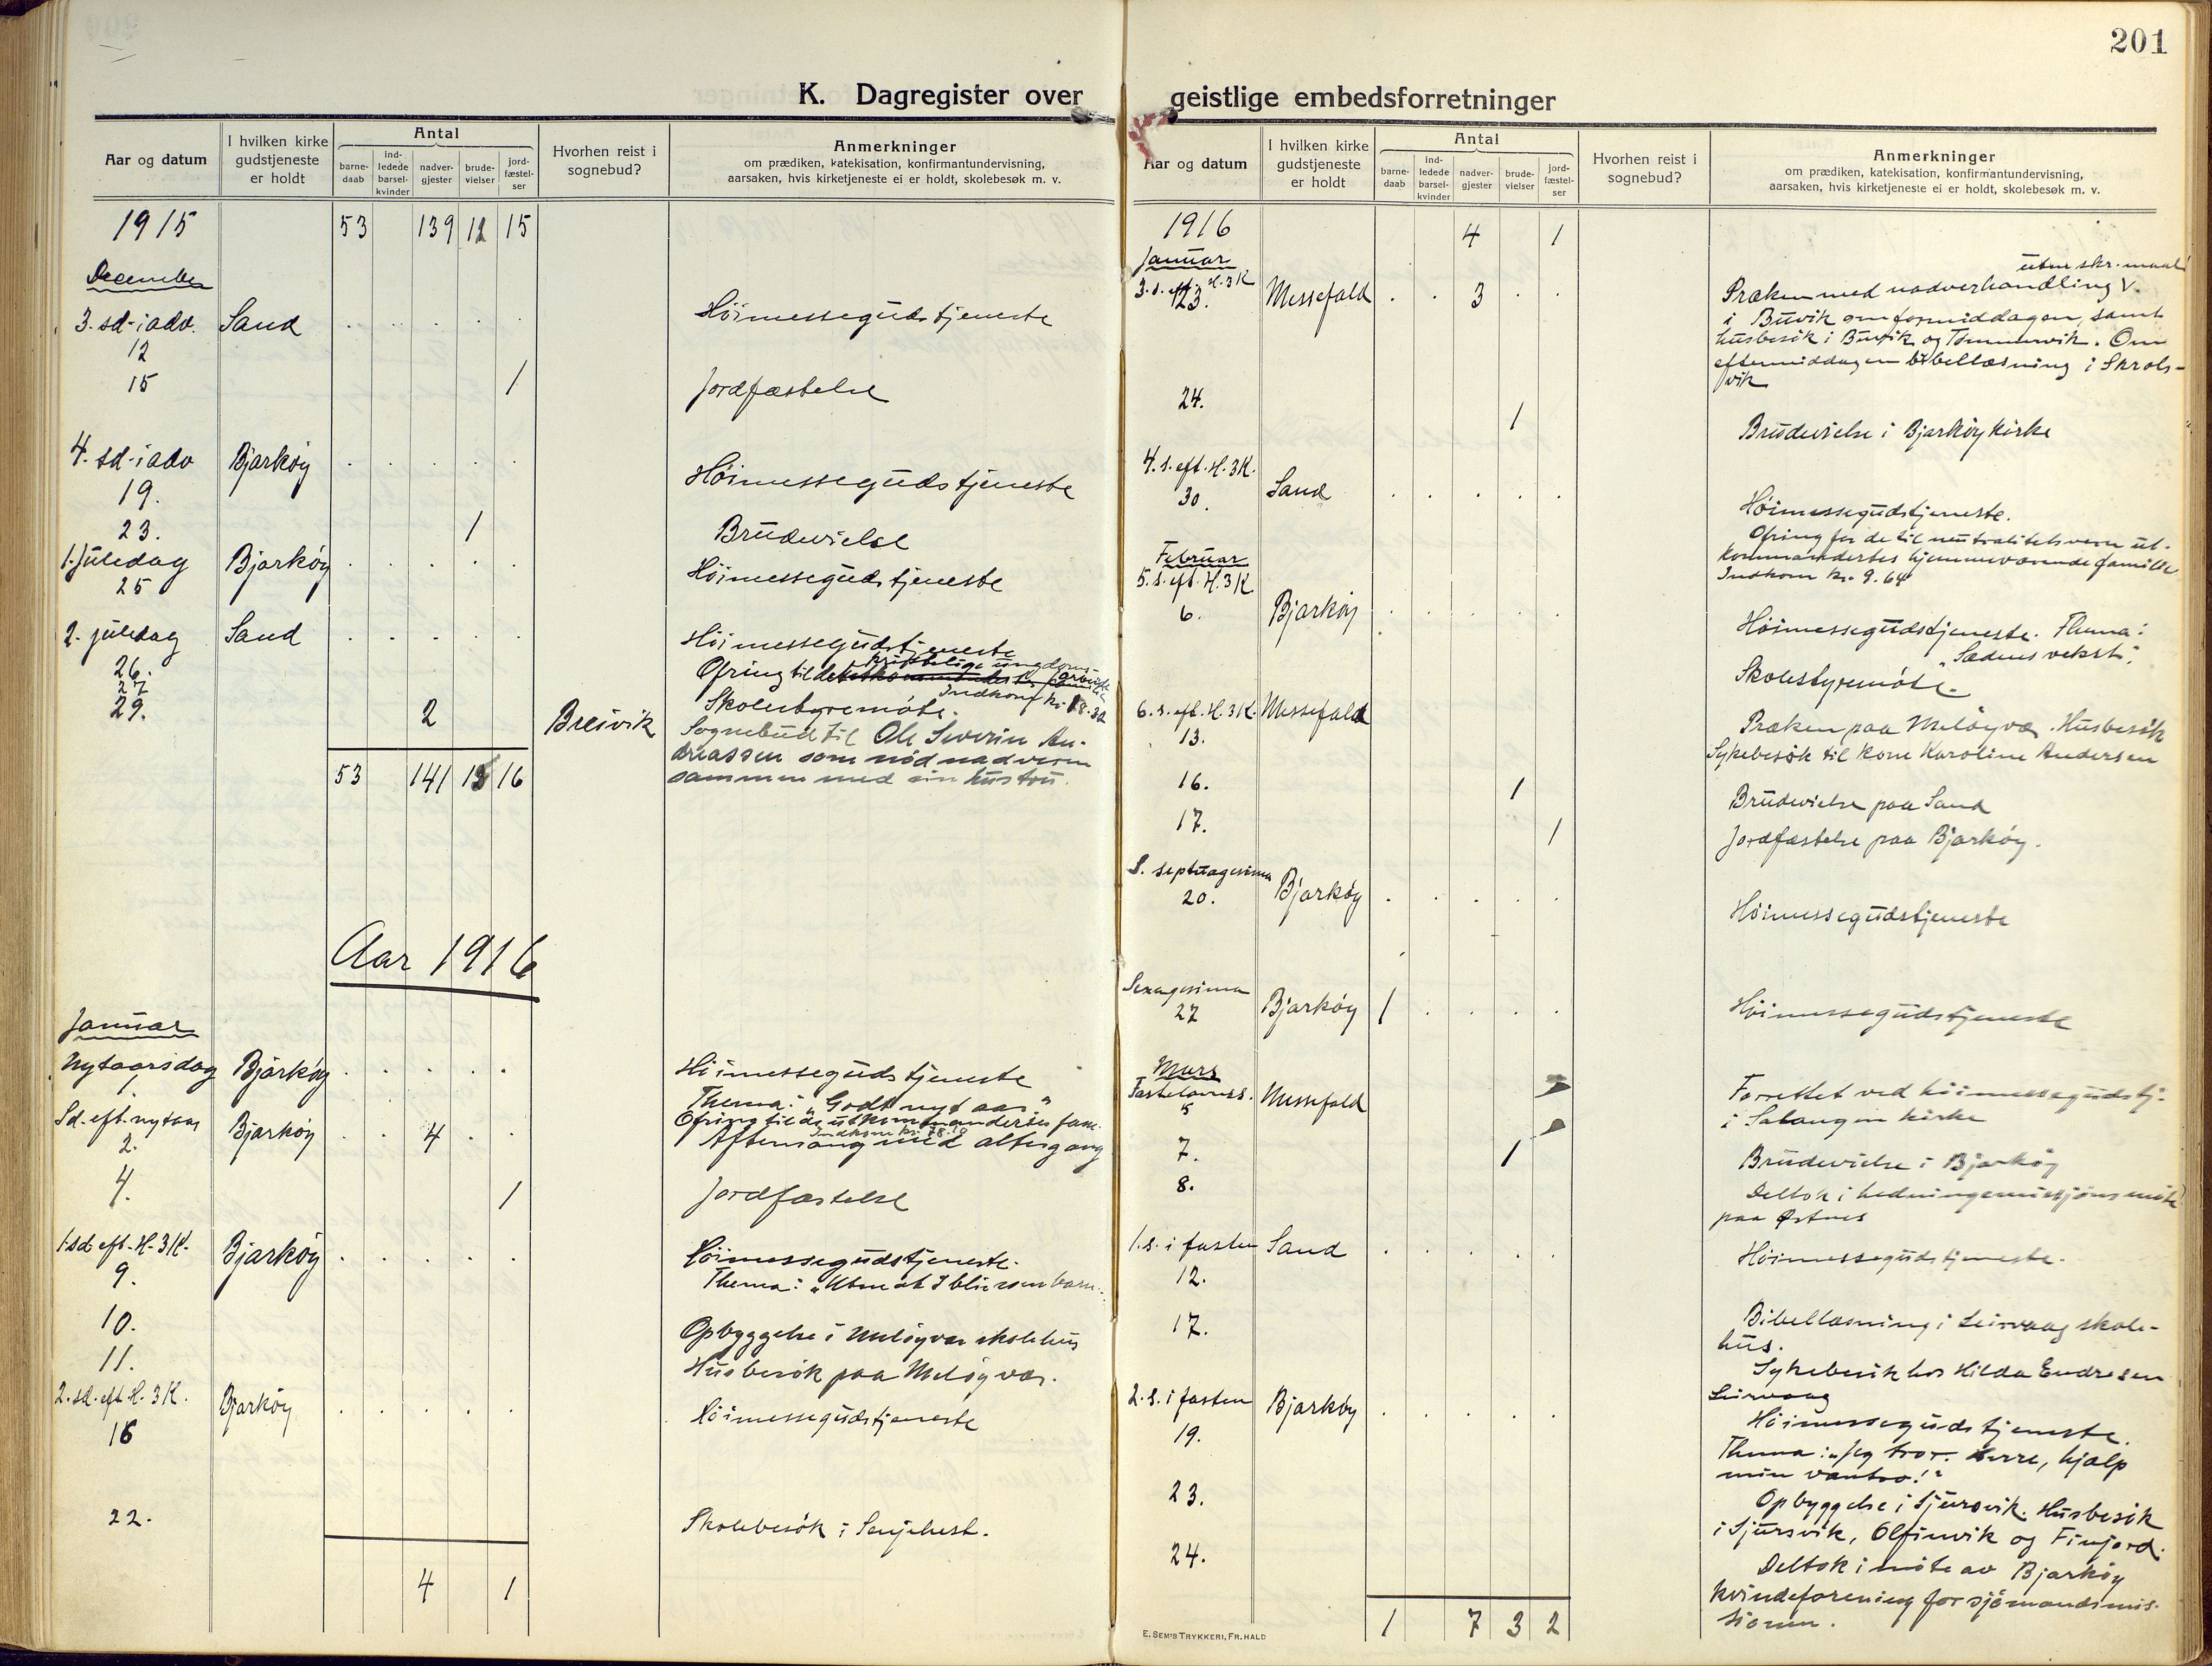 201
K. Dagregister over geistlige embedsforretninger
Aar og datum
I hvilken kirke
gudstjeneste
er holdt
Antal
barne-
daab
ind-
ledede
barsel-
kvinder
nadver-
gjester
brude-
vielser
jord-
fæstel-
ser
Hvorhen reist i
sognebud?
Anmerkninger
om prædiken, katekisation, konfirmantundervisning,
aarsaken, hvis kirketjeneste ei er holdt, skolebesøk m. v.
1915 53 139 12 15
December
3. sd. i adv. Sand . . . . . Höimessegudstjeneste
12
15 1 Jordfæstelse
4. sd. i adv Bjarköy . . . . . Höimessegudstjeneste
19.
23. 1 Brudevielse
1. Juledag Bjarköy . . . . . Höimessegudstjeneste
25
2. juledag Sand . . . . . Höimessegudstjeneste
26. kristelige ungdoms-
Ofring til det arbeide
27 Indkom kr. 18.32
Skolestyremöte.
29. 2 Breivik Sognebud til Ole Severin An-
dreassen som nöd nadveren
sammen med sin hustru.
53 141 13 16
Aar 1916
Januar
Nytaarsdag Bjarköy . . . . . Höimessegudstjeneste
1 Thema: "Godt nyt aar"
Ofring til de utkommandertes fam.
Indkom kr. 78.10
Sd. eft. nytaar Bjarköy . . 4 . . Aftensang med altergang
2.
4. 1 Jordfæstelse
1. sd. eft. H. 3 K. Bjarköy . . . . . Höimessegudstjeneste.
9. Thema: "Uten at I blir som barn"
10. Opbyggelse i Melöyvær skolehus
11. Husbesök paa Melöyvær.
2. sd. eft. H. 3 K. Bjarköy . . . . . Höimessegudstjeneste
16
22. Skolebesök i Senjehest.
4 1
Aar og datum
I hvilken kirke
gudstjeneste
er holdt
Antal
barne-
daab
ind-
ledede
barsel-
kvinder
nadver-
gjester
brude-
vielser
jord-
fæstel-
ser
Hvorhen reist i
sognebud?
Anmerkninger
om prædiken, katekisation, konfirmantundervisning,
aarsaken, hvis kirketjeneste ei er holdt, skolebesøk m. v.
1916 4 1
Januar
3. s. eft. H. 3 K uten skr. maal
23. Messefald . . 3 . . Præken med nadverhandling V.
i Buvik om formiddagen, samt
husbesök i Buvik og Tömmervik. Om
eftermiddagen bibellæsning i Skrols-
vik
24. 1 Brudevielse i Bjarköy kirke
4. s. eft. H. 3 K.
30. Sand . . . . . Höimessegudstjeneste.
Ofring for de til neutralitetsvern ut-
kommandertes hjemmeværende familie
Indkom kr. 9.64
Februar
5. s. eft. H. 3 K
6. Bjarköy . . . . . Höimessegudstjeneste. Thema:
"Sædens vekst".
Skolestyremöte.
6. s. eft. H. 3 K. Messefald Præken paa Melöyvær. Husbesök
13. Sykebesök til kone Karoline Andersen
16. 1 Brudevielse paa Sand
17. 1 Jordfæstelse paa Bjarköy.
S. septuagesima
20. Bjarköy . . . . . Höimessegudstjeneste
Sexagesima
27 Bjarköy 1 . . . . Höimessegudstjeneste
Mars
Fastelavnss. Messefald Forrettet ved höimessegudstj.
5 i Salangen kirke
7. 1 Brudevielse i Bjarköy
8. Deltok i hedningemissjonsmöte
paa Østnes
1. s. i fasten Sand . . . . . Höimessegudstjeneste.
12.
17. Bibellæsning i Leirvaag skole-
hus.
Sykebesök hos Hilda Endresen
Leirvaag
2. s. i fasten Bjarköy . . . . . Höimessegudstjeneste.
19. Thema: "Jeg tror. Herre, hjælp
min vantro!"
23. Opbyggelse i Sjursvik. Husbesök
i Sjursvik, Olfinvik og Finfjord.
24. Deltok i möte av Bjarköy
kvindeforening for sjömandsmis-
sionen.
1 7 3 2
E. SEM'S TRYKKERI, FR. HALD